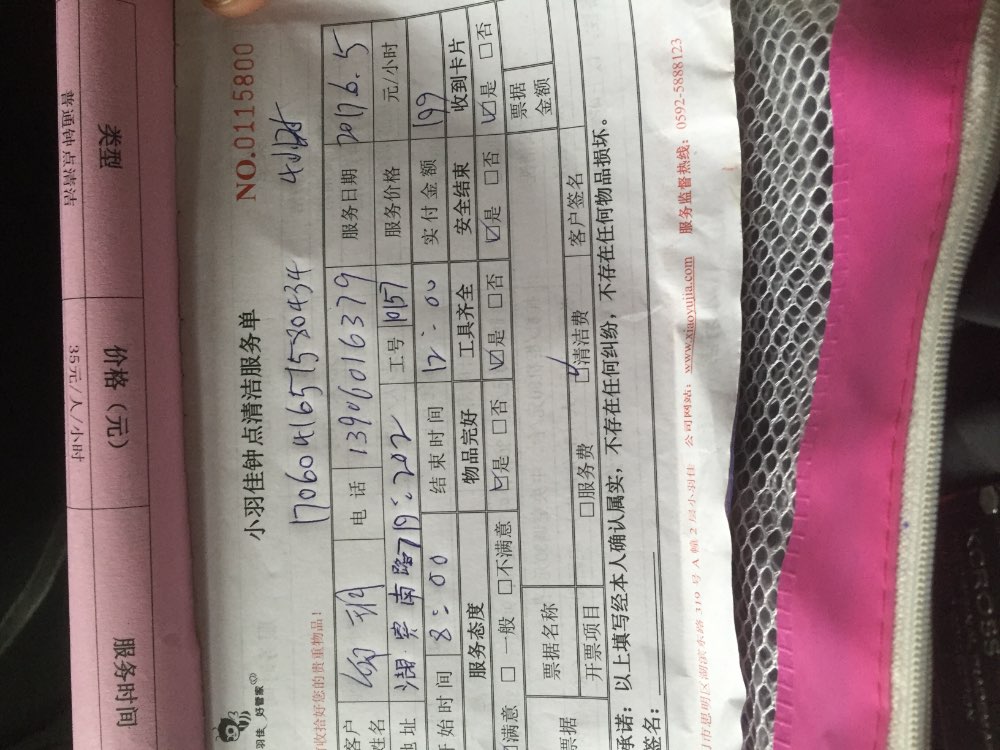 类型
普通钟点清洁
价格（元）
35元/人/小时
服务时间
羽佳 好管家
小羽佳钟点清洁服务单
NO.0115800
收拾好您的贵重物品！
1706041651580434
客户姓名
电话 13906016379
服务日期 2017.6.5
地址 湖宾南路719:202
工号 1057
服务价格 元/小时
开始时间 8:00
结束时间 12:00
实付金额 199
服务态度 物品完好 工具齐全 安全结束 收到卡片
满意 □一般 □不满意 ☑是 □否 ☑是 □否 ☑是 □否 ☑是 □否
票据
票据名称
票据金额
开票项目 □服务费 ☑清洁费 客户签名
承诺：以上填写经本人确认属实，不存在任何纠纷，不存在任何物品损坏。
签名：
市思明区湖滨东路319号A幢2层小羽佳 公司网站：www.xiaoyujia.com 服务监督热线：0592-5888123